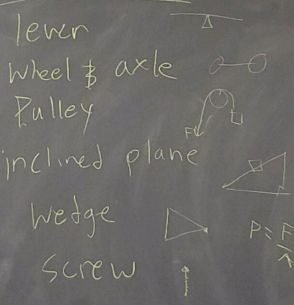 lever
Wheel & axle
Pulley
F
inclined plane
Wedge
P = F/A
Screw